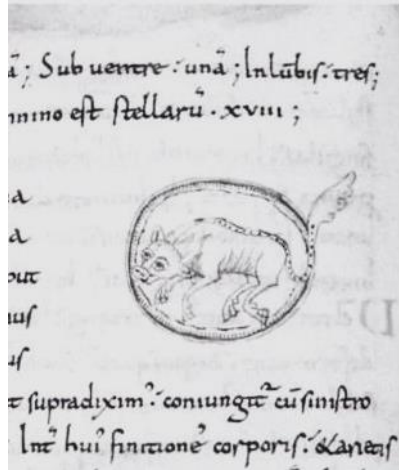 ā; Sub uentre · unā; In lūbis · tres;
mnino est stellarū · xviii;
a
a
put
nus
us
t supradixim᾽ · coniungit᷒ cū sinistro
Int᷒ hui᾽ finitione᾽ corporis · & arietis